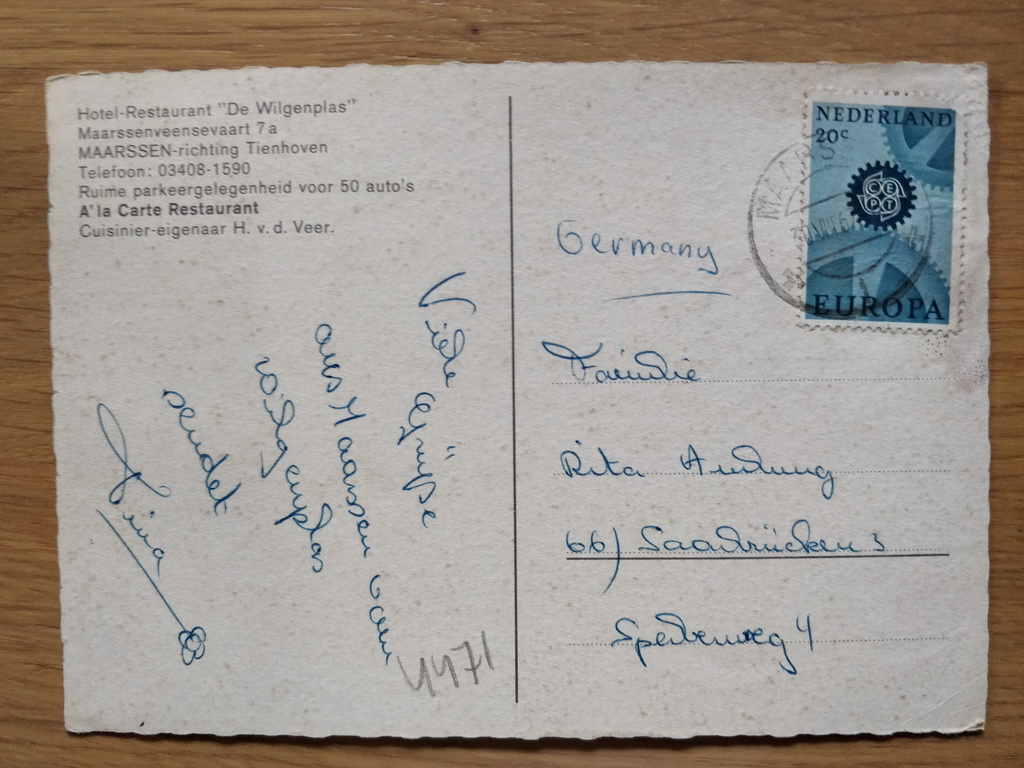 Hotel-Restaurant "De Wilgenplas"
Maarssenveensevaart 7a
MAARSSEN-richting Tienhoven
Telefoon: 03408-1590
Ruime parkeergelegenheid voor 50 auto's
A' la Carte Restaurant
Cuisinier-eigenaar H. v. d. Veer.
Viele Grüße
aus Maarssen
sendet
4471
NEDERLAND
20c
CEPT
EUROPA
MAARSS
Germany
Familie
Rita
66) Saarbrücken 3
Sperberweg 4